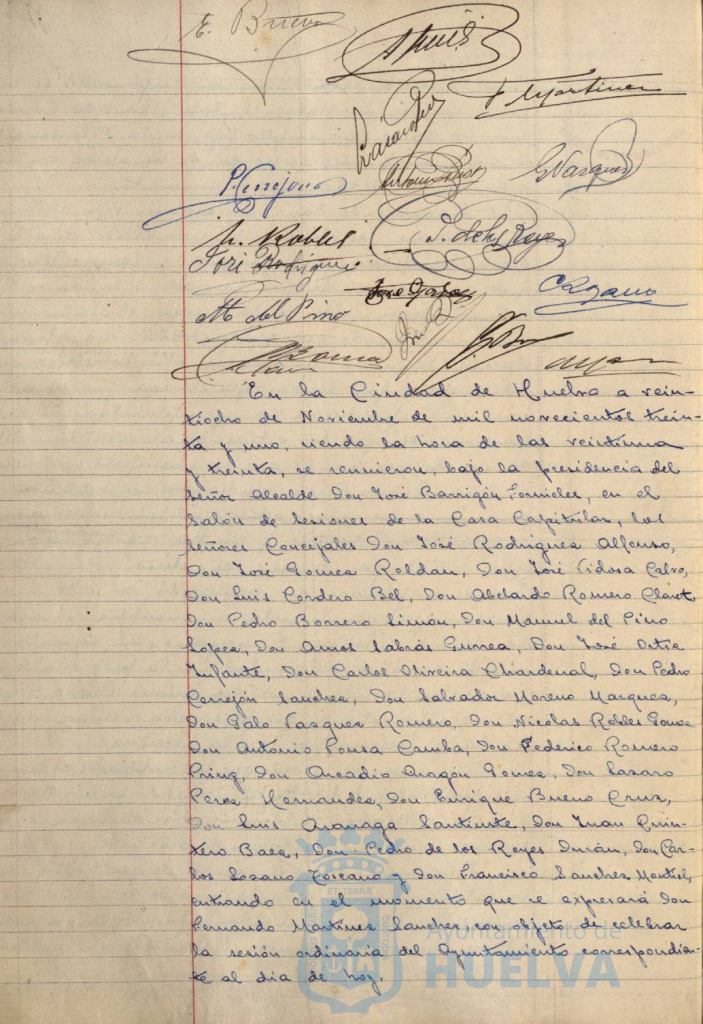 E. Bueno
F Martinez
P. Cerrejon
G Vazquez
N. Robles
P. de los Reyes
José Rodriguez
M. del Pino
José Gomez
C Lozano
En la Ciudad de Huelva a vein-
tiocho de Noviembre de mil novecientos trein-
ta y uno, siendo la hora de las veintiuna
y treinta, se reunieron, bajo la presidencia del
Señor Alcalde Don José Barrigón Fornieles, en el
Salón de Sesiones de la Casa Capitular, los
Señores Concejales Don José Rodriguez Alfonso,
Don José Gomez Roldan, Don José Vidosa Calvo,
Don Luis Cordero Bel, Don Abelardo Romero Claret,
Don Pedro Borrero Limón, Don Manuel del Pino
Lopez, Don Amos Sabrás Gurrea, Don José Ortiz
Infante, Don Carlos Oliveira Chardenal, Don Pedro
Cerrejón Sanchez, Don Salvador Moreno Marquez,
Don Galo Vazquez Romero, Don Nicolas Robles Gomez
Don Antonio Pousa Camba, Don Federico Romero
Pring, Don Arcadio Aragón Gomez, Don Lazaro
Perez Hernandez, Don Enrique Bueno Cruz,
Don Luis Aranaga Santiuste, Don Juan Quin-
tero Baez, Don Pedro de los Reyes Durán, Don Car-
los Lozano Toscano y Don Francisco Sanchez Montiel,
entrando en el momento que se expresará Don
Fernando Martinez Sanchez con objeto de celebrar
la sesión ordinaria del Ayuntamiento correspondien-
te al dia de hoy.
Ayuntamiento de
HUELVA